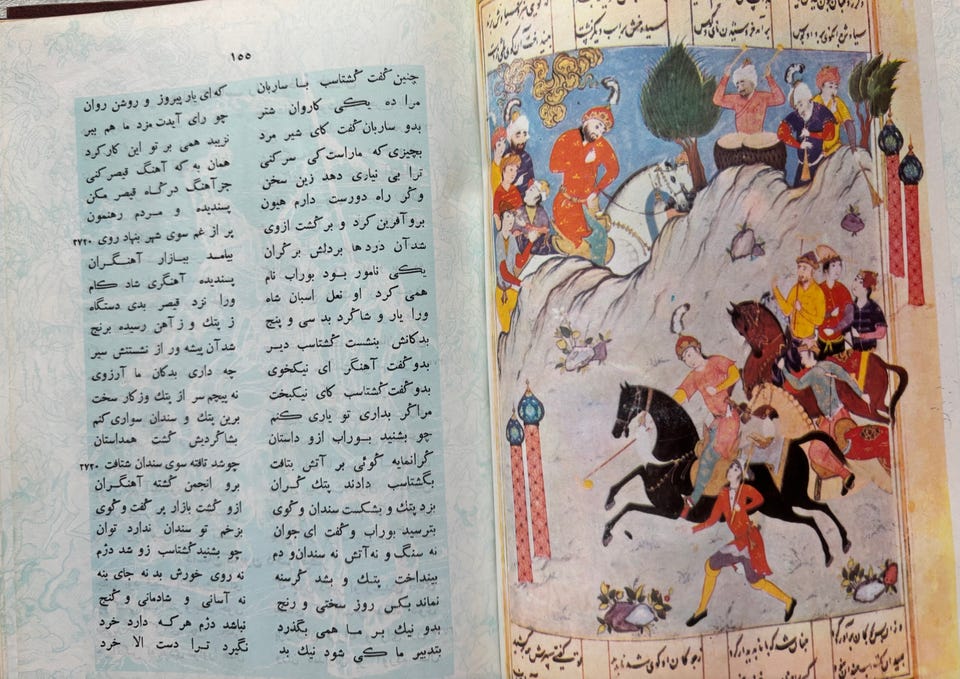 ۱۵۵
چنین گفت گشتاسب بسا ساربان که ای یار پیروز و روشن روان
مرا ده یکی کاروان شتر چو رای آیدت مزد ما هم ببر
بدو ساربان گفت کای شیر مرد نزیبد همی بر تو این کار کرد
بچیزی که ماراست کی سر کنی همان به که آهنگ قیصر کنی
ترا بی نیازی دهد زین سخن جز آهنگ درگاه قیصر مکن
و گر راه دورست دارم هیون پسندیده و مردم رهنمون
برو آفرین کرد و برگشت ازوی پر از غم سوی شهر بنهاد روی ۲۷۲۰
شد آن دردها بردلش بر گران بیامد ببازار آهنگران
یکی نامور بود بوراب نام پسندیده آهنگری شاد کام
همی کرد او نعل اسبان شاه ورا نزد قیصر بدی دستگاه
ورا یار و شاگرد بد سی و پنج ز پتك و ز آهن رسیده برنج
بدکانش بنشست گشتاسب دیر شدآن پیشه ور از نشستنش سیر
بدو گفت آهنگر ای نیکخوی چه داری بدکان ما آرزوی
بدو گفت گشتاسب کای نیکبخت نه پیچم سر از پتك وز کار سخت
مرا گر بداری تو یاری کنم برین پتك و سندان سواری کنم
چو بشنید بوراب ازو داستان بشاگردیش گشت همداستان
گرانمایه گوئی بر آتش بتافت چوشد تافته سوی سندان شتافت ۲۷۳۰
بگشتاسب دادند پتك گران برو انجمن گشته آهنگران
بزد پتك و بشکست سندان و گوی ازو گشت بازار پر گفت و گوی
بترسید بوراب و گفت ای جوان بزخم تو سندان ندارد توان
نه سنگ و نه آتش نه سندان و دم چو بشنید گشتاسب زو شد دژم
بینداخت پتك و بشد گرسنه نه روی خورش بد نه جای بنه
نماند بکس روز سختی و رنج نه آسانی و شادمانی و گنج
بدو نیك بر ما همی بگذرد نباشد دژم هر که دارد خرد
بتدبیر ما کی شود نیك بد نگیرد ترا دست الا خرد